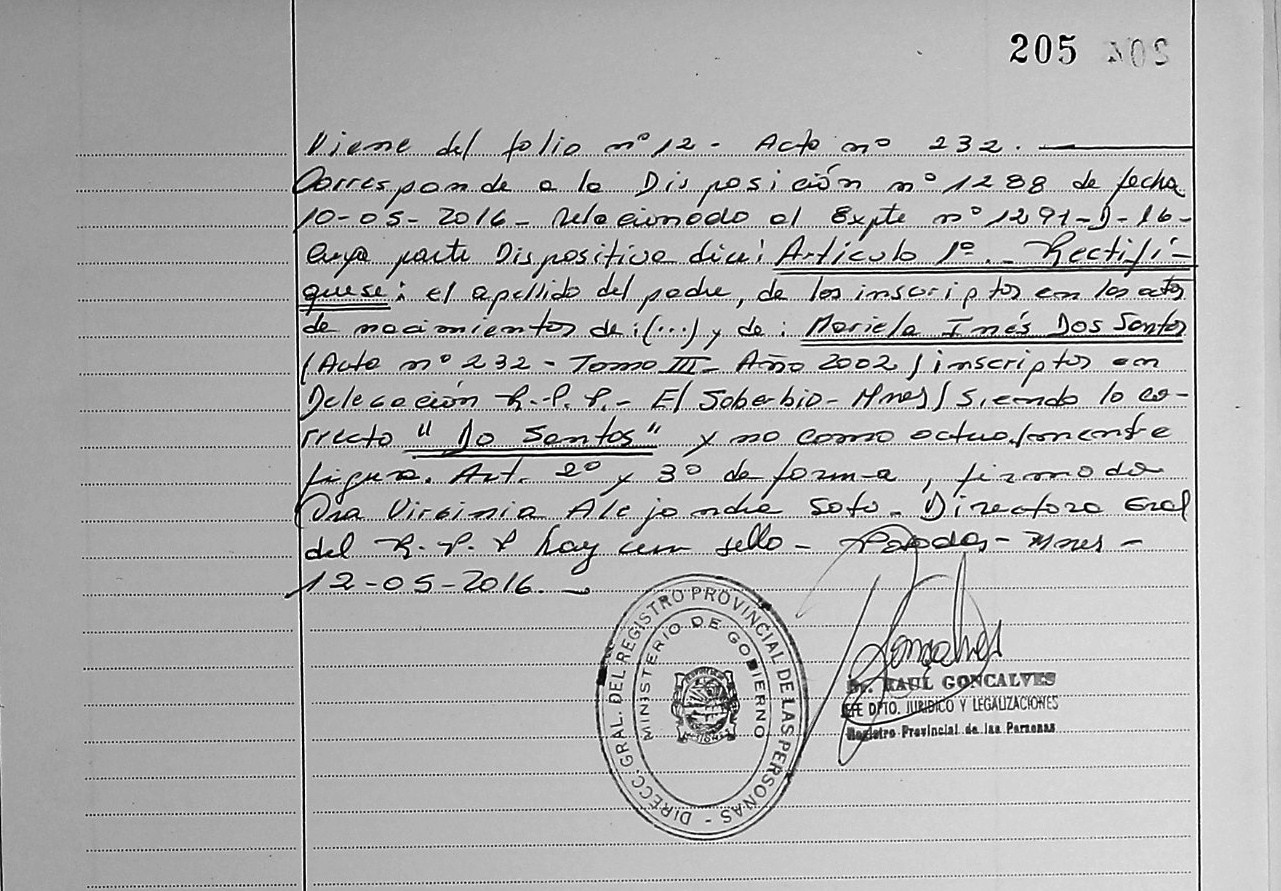 205 204
Viene del folio nº 12 - Acta nº 232.
Corresponde a la Disposición nº 1288 de fecha
10-05-2016 - Relacionado al Expte nº 1291-D-16-
cuya parte Dispositiva dice: Artículo 1º.- Rectifí-
quese: el apellido del padre, de los inscriptos en las actas
de nacimientos de: (...) y de: Mariela Inés Dos Santos
(Acta nº 232 - Tomo III - Año 2002) inscriptos en
Delegación R.P.P.- El Soberbio - Mnes) siendo lo co-
rrecto "Do Santos" y no como actualmente
figura. Art. 2º y 3º de forma, firmado
Dra Virginia Alejandra Soto - Directora Gral
del R.P.P hay un sello - Posadas - Mnes -
12-05-2016.
DIRECC. GRAL. DEL REGISTRO PROVINCIAL DE LAS PERSONAS -
MINISTERIO DE GOBIERNO
Goncalves
Dr. RAUL GONCALVES
JEFE DPTO. JURIDICO Y LEGALIZACIONES
Registro Provincial de las Personas